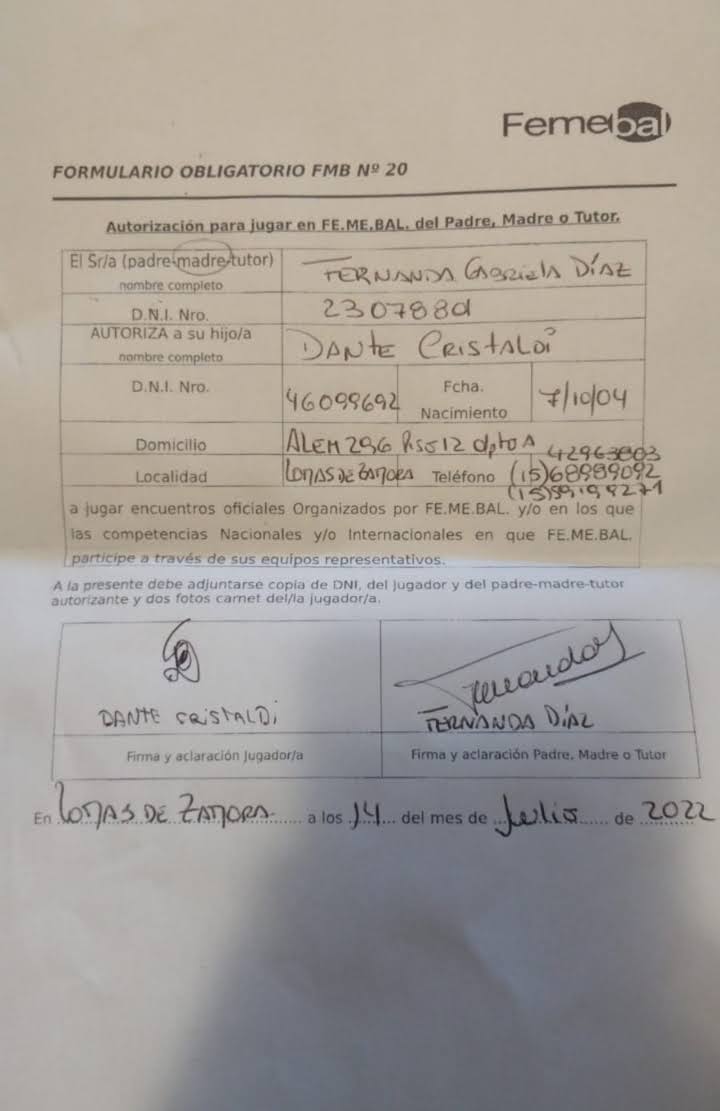 Femebal
FORMULARIO OBLIGATORIO FMB Nº 20
Autorización para jugar en FE.ME.BAL. del Padre, Madre o Tutor.
El Sr/a (padre-madre-tutor) FERNANDA GABRIELA DÍAZ
nombre completo
D.N.I. Nro.
AUTORIZA a su hijo/a DANTE CRISTALDI
nombre completo
D.N.I. Nro. 46099692 Fcha. 7/10/04
Nacimiento
Domicilio ALEM 296 PISO 12 dpto A 42963803
Localidad LOMAS DE ZAMORA Teléfono (15)68989092
a jugar encuentros oficiales Organizados por FE.ME.BAL. y/o en los que
las competencias Nacionales y/o Internacionales en que FE.ME.BAL.
participe a través de sus equipos representativos.
A la presente debe adjuntarse copia de DNI, del jugador y del padre-madre-tutor
autorizante y dos fotos carnet del/la jugador/a.
DANTE CRISTALDI FERNANDA DÍAZ
Firma y aclaración Jugador/a Firma y aclaración Padre, Madre o Tutor
En LOMAS DE ZAMORA a los 14 del mes de Julio de 2022